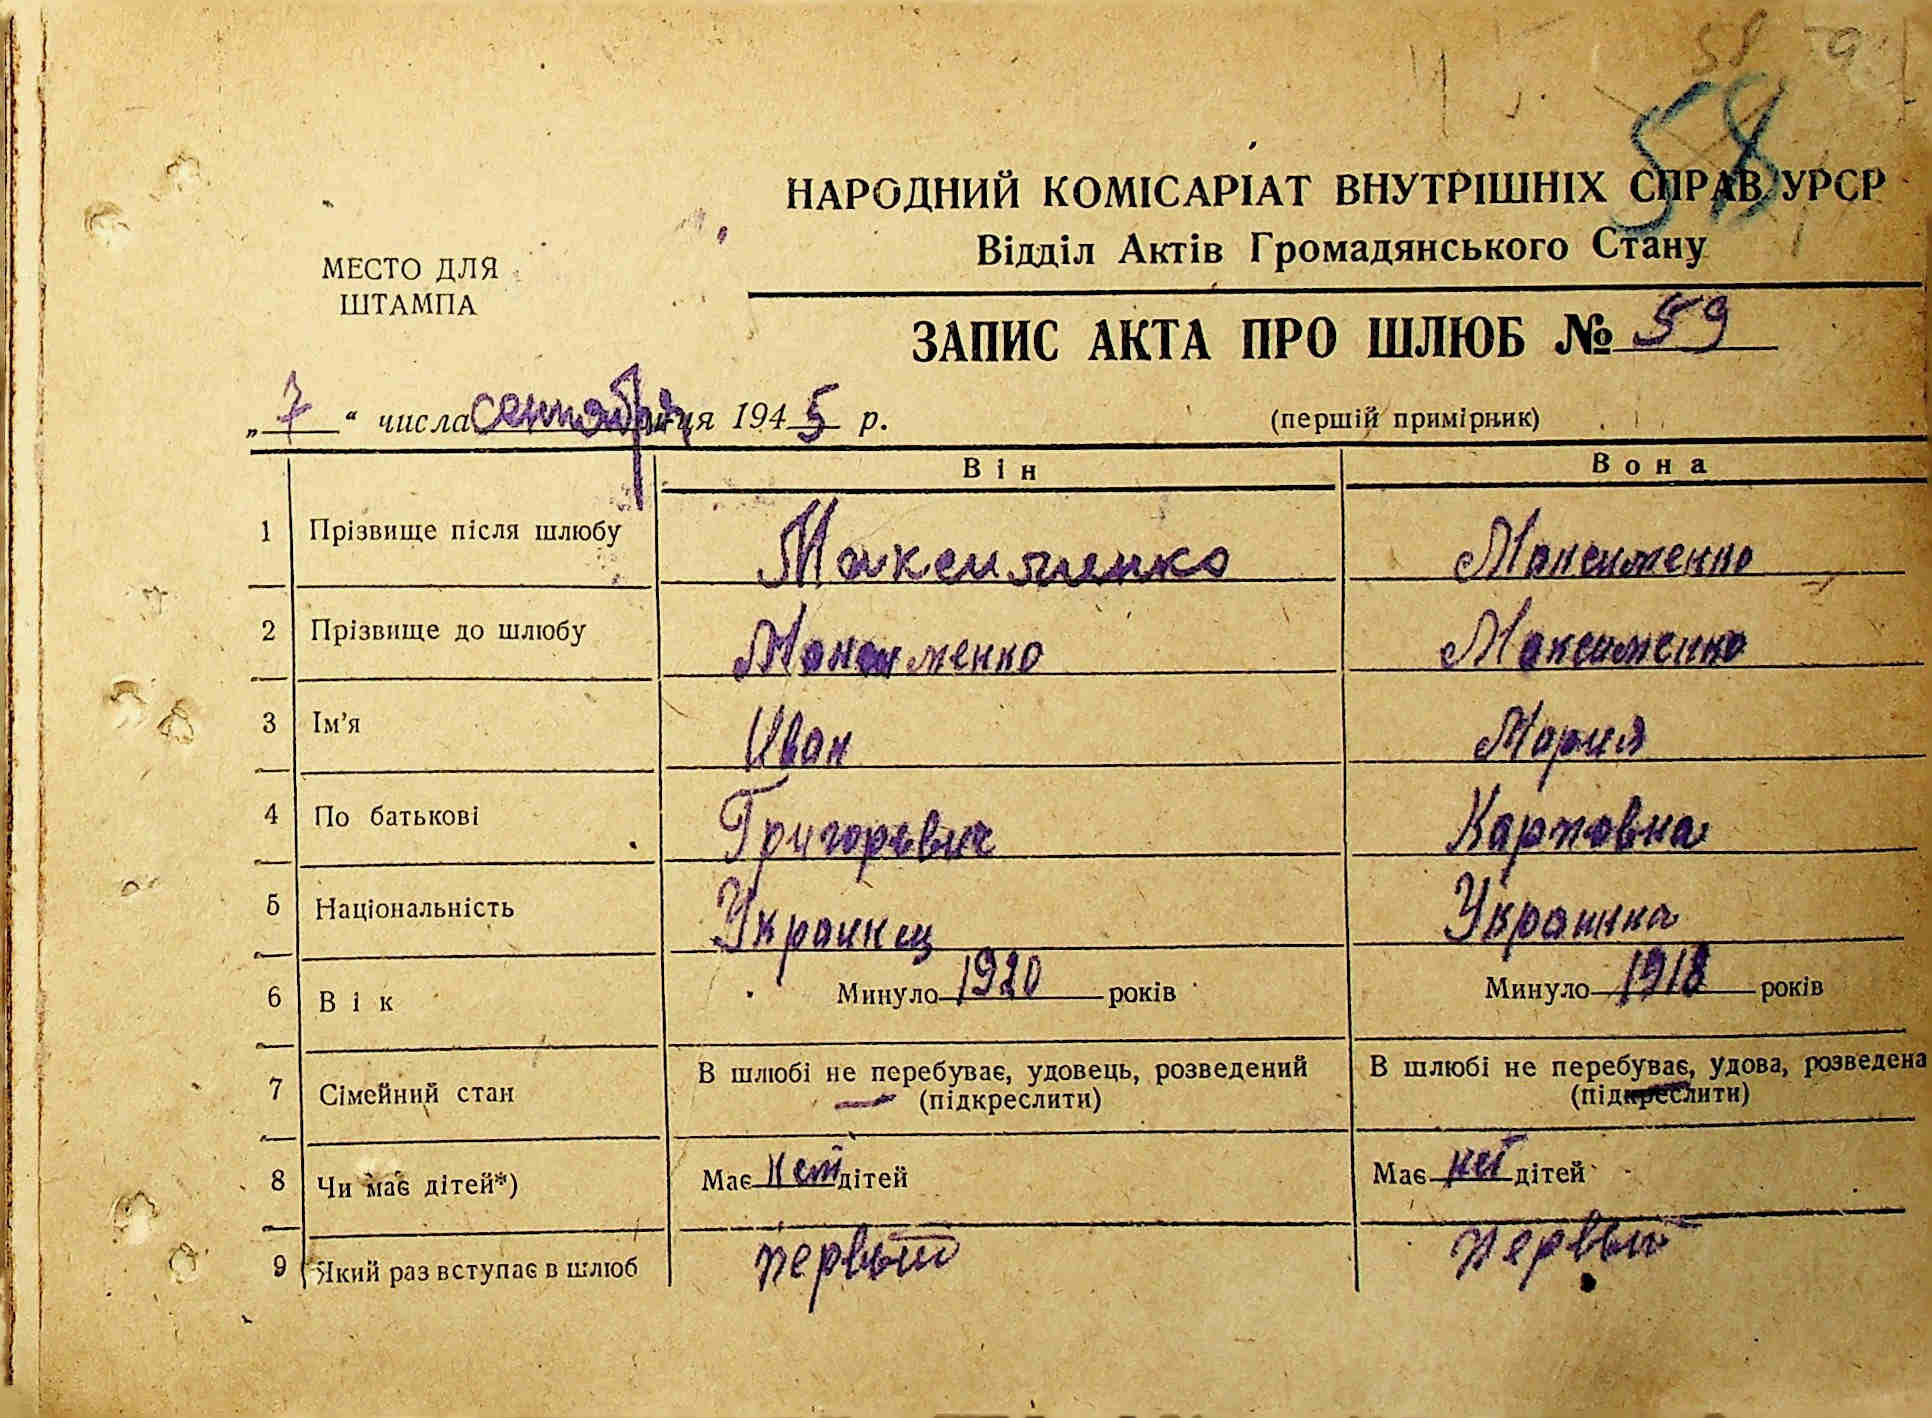 58
58
НАРОДНИЙ КОМІСАРІАТ ВНУТРІШНІХ СПРАВ УРСР
Відділ Актів Громадянського Стану
МЕСТО ДЛЯ
ШТАМПА
ЗАПИС АКТА ПРО ШЛЮБ № 59
„ 7 “ числа сентября місяця 1945 р. (першій примірник)
Він Вона
1 Прізвище після шлюбу Максименко Максименко
2 Прізвище до шлюбу Максименко Максименко
3 Ім’я Иван Мария
4 По батькові Григоревич Карповна
5 Національність Украинец Украинка
6 Вік Минуло 1920 років Минуло 1918 років
7 Сімейний стан В шлюбі не перебуває, удовець, розведений (підкреслити) В шлюбі не перебуває, удова, розведена (підкреслити)
8 Чи має дітей*) Має нет дітей Має нет дітей
9 Який раз вступає в шлюб первый первый